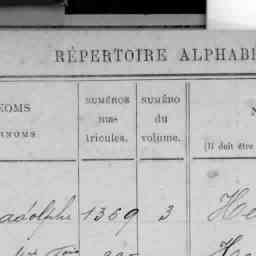 RÉPERTOIRE ALPHABÉ
NOMS
PRÉNOMS
NUMÉROS
ma-
tricules.
NUMÉRO
du
volume.
N
(Il doit être
adolphe 1369 3 He